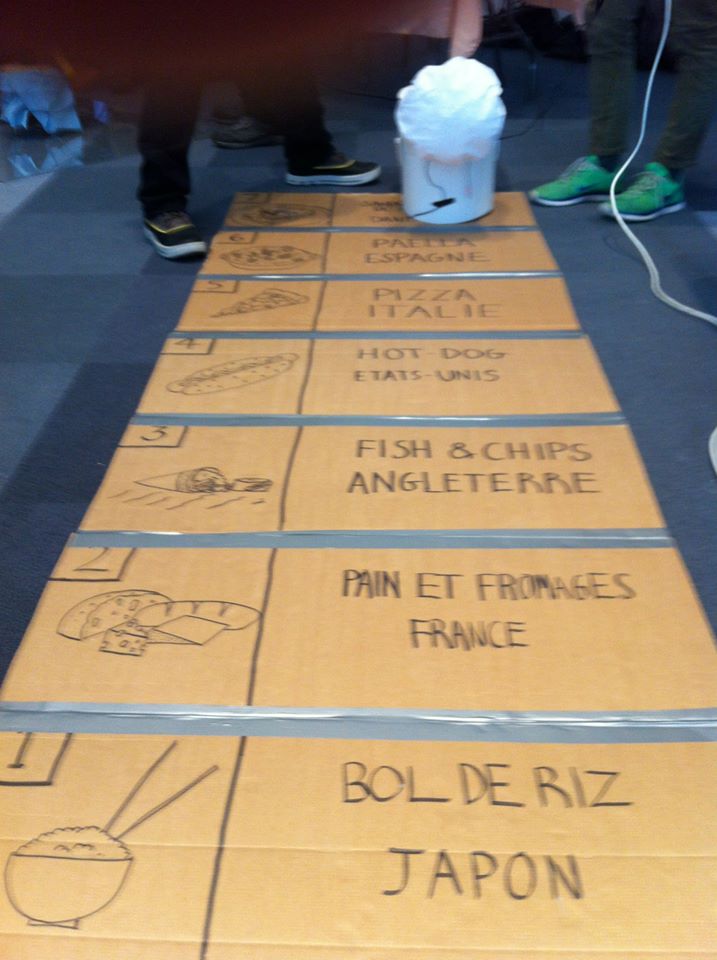 6
PAELLA
ESPAGNE
5
PIZZA
ITALIE
4
HOT-DOG
ETATS-UNIS
3
FISH & CHIPS
ANGLETERRE
2
PAIN ET FROMAGES
FRANCE
1
BOL DE RIZ
JAPON